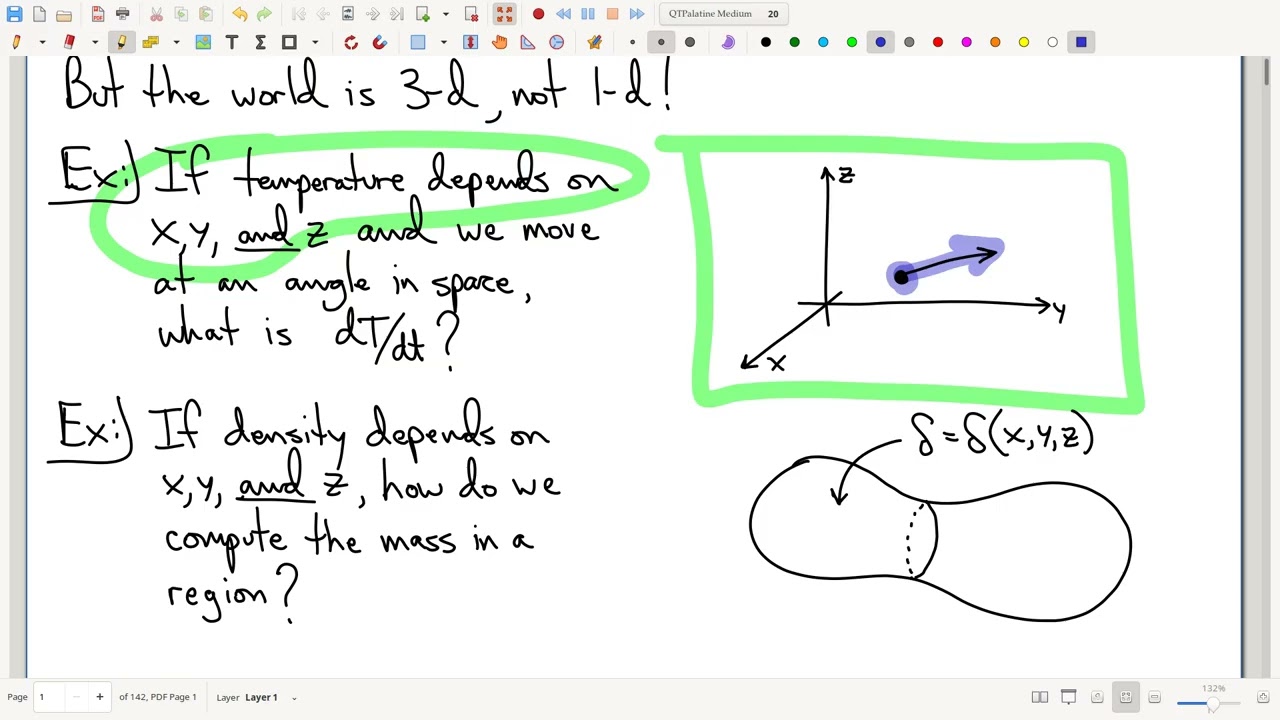 QTPalatine Medium 20
But the world is 3-d, not 1-d!
Ex:) If temperature depends on
x, y, and z and we move
at an angle in space,
what is dT/dt?
z
y
x
Ex:) If density depends on
x, y, and z, how do we
compute the mass in a
region?
δ = δ(x, y, z)
Page 1 of 142, PDF Page 1 Layer Layer 1
132%